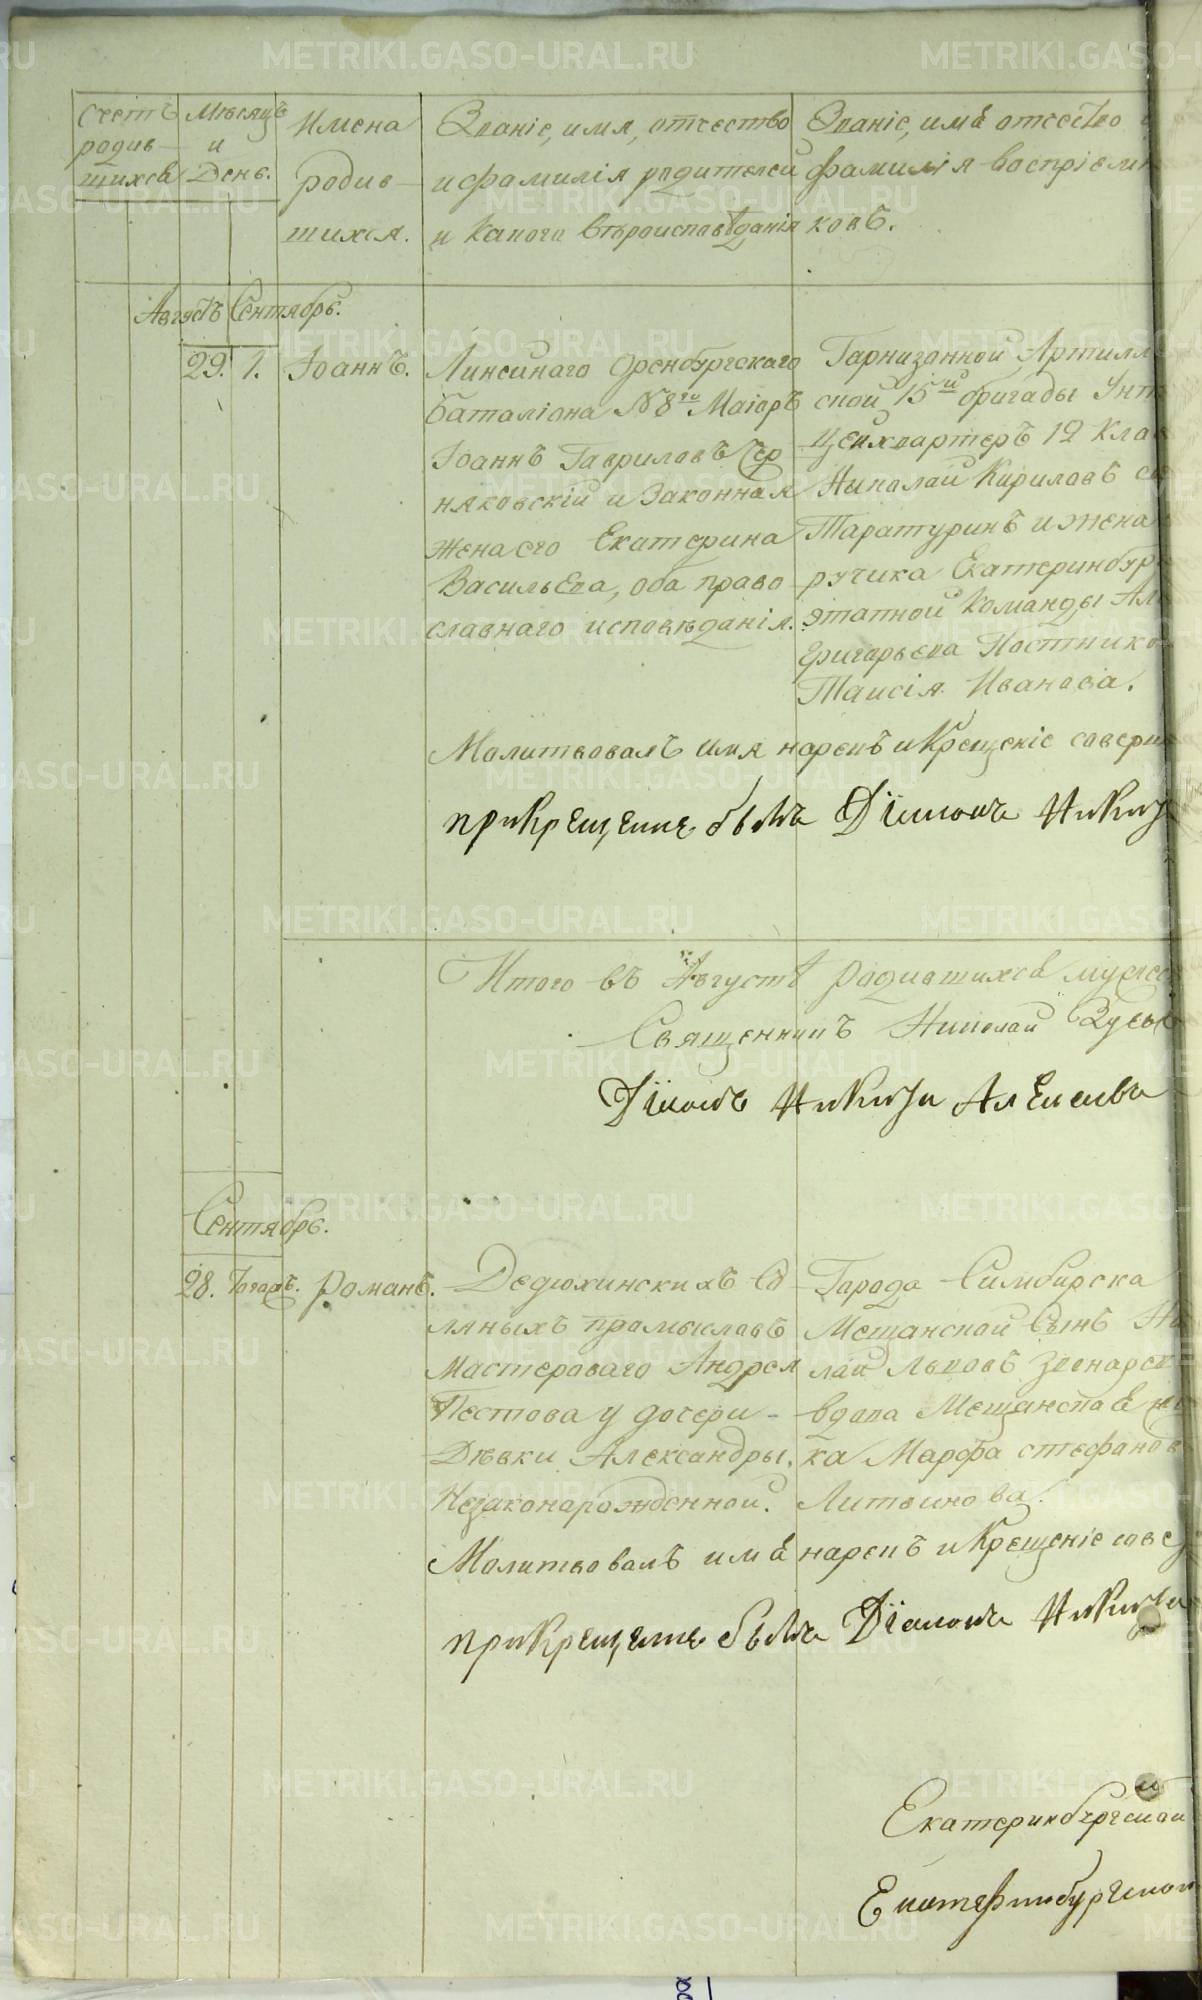 Счетъ родив- шихся
Мѣсяцъ и День.
Имена родив- шихся.
Званіе, имя, отчество
и фамилія родителей
и какого вѣроисповѣданія
Званіе, имя отчество
фамилія воспріемни
ковъ.
Августъ Сентябрь.
29. 1. Іоаннъ.
Линейнаго Оренбургскаго
баталіона №8го Маіоръ
Іоаннъ Гавриловъ Чер
няковскій и Законная
жена его Екатерина
Васильева, оба право
славнаго исповѣданія.
Гарнизонной Артилле
ской 15й бригады Унт
Цейхвартеръ 12 Клас
Николай Кириловъ
Таратуринъ и жена
ручика Екатеринбур
этапной Команды Ал
Григорьева Постнико
Таисія Иванова.
Молитвовалъ имя нарекъ и Крещеніе соверш
при крещеніи былъ Діаконъ Никит
Итого въ Августѣ родившихся мужес
Священникъ Николай
Діаконъ Никита Алексѣевъ
Сентябрь.
28. Тогожъ. Романъ.
Дедюхинскихъ Со
ляныхъ промысловъ
Мастероваго Андрея
Пестова у дочери
Дѣвки Александры,
Незаконорожденной.
Города Симбирска
Мещанской сынъ Ни
лай Львовъ
вдова Мещанская
ка Марфа Стефанов
Литвинова.
Молитвовалъ имя нарекъ и Крещеніе сове
при крещеніи былъ Діаконъ Никита
Екатеринбургской
Екатеринбургской
METRIKI.GASO-URAL.RU